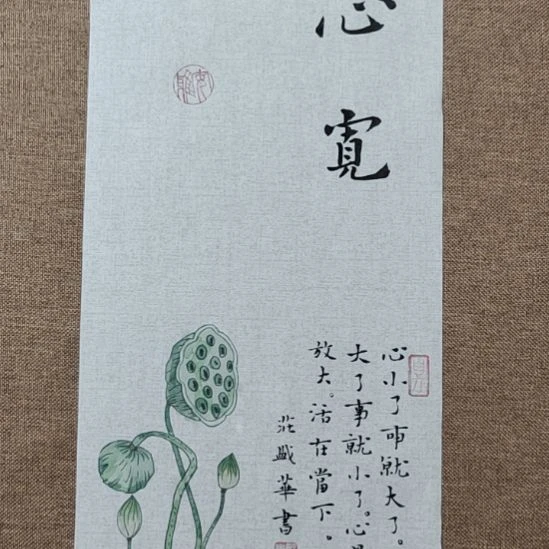 心寬
心小了事就大了。
大了事就小了。心
放大。活在當下。
莊盛華書